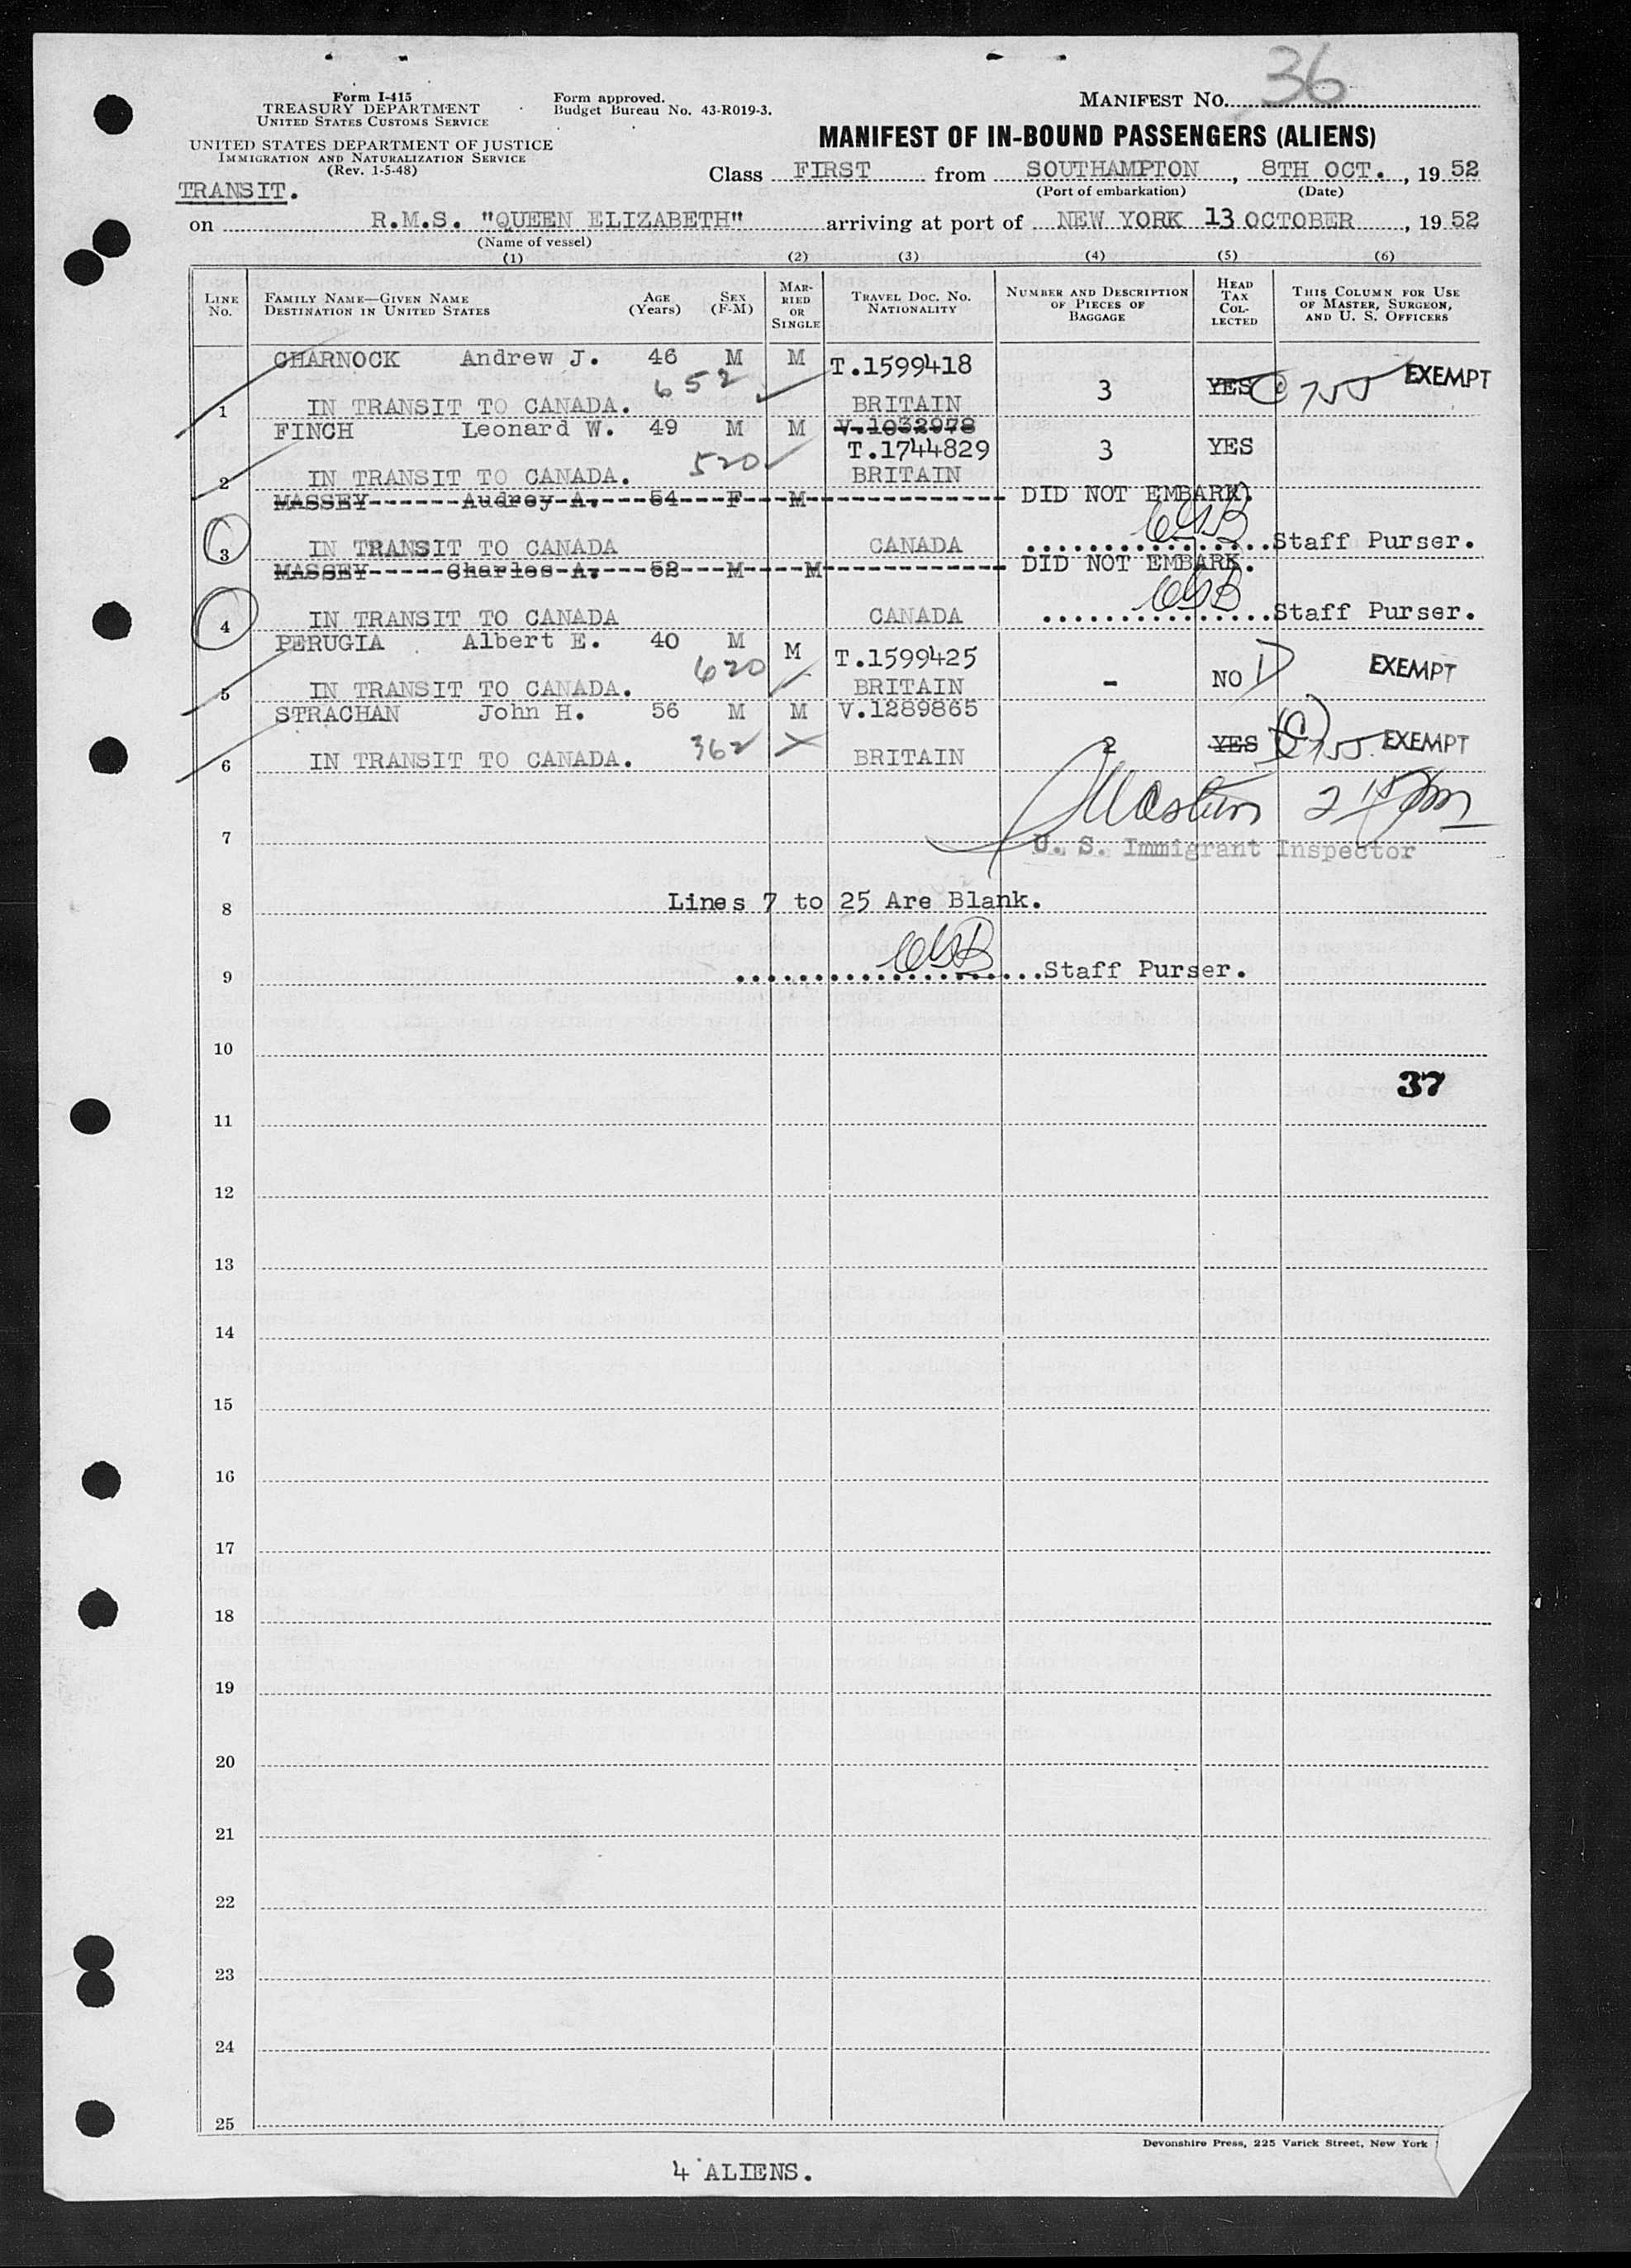 36
Form I-415
TREASURY DEPARTMENT
UNITED STATES CUSTOMS SERVICE
Form approved.
Budget Bureau No. 43-R019-3.
MANIFEST NO.
UNITED STATES DEPARTMENT OF JUSTICE
IMMIGRATION AND NATURALIZATION SERVICE
(Rev. 1-5-48)
MANIFEST OF IN-BOUND PASSENGERS (ALIENS)
Class FIRST from SOUTHAMPTON, 8TH OCT., 1952
(Port of embarkation) (Date)
TRANSIT.
on R.M.S. "QUEEN ELIZABETH" arriving at port of NEW YORK 13 OCTOBER, 1952
(Name of vessel)
(1) (2) (3) (4) (5) (6)
LINE NO. FAMILY NAME—GIVEN NAME DESTINATION IN UNITED STATES AGE (Years) SEX (F-M) MARRIED OR SINGLE TRAVEL DOC. NO. NATIONALITY NUMBER AND DESCRIPTION OF PIECES OF BAGGAGE HEAD TAX COLLECTED THIS COLUMN FOR USE OF MASTER, SURGEON, AND U. S. OFFICERS
CHARNOCK Andrew J. 46 M M T.1599418
652 3 YES 755 EXEMPT
1 IN TRANSIT TO CANADA. BRITAIN
FINCH Leonard W. 49 M M V.1032978
T.1744829 3 YES
520
2 IN TRANSIT TO CANADA. BRITAIN
MASSEY------Audrey A.---54---F---M------------- DID NOT EMBARK.
3 IN TRANSIT TO CANADA CANADA ...............Staff Purser.
MASSEY-----Charles A.---52---M----M------------ DID NOT EMBARK.
4 IN TRANSIT TO CANADA CANADA ...............Staff Purser.
PERUGIA Albert E. 40 M M T.1599425
620 - NO EXEMPT
5 IN TRANSIT TO CANADA. BRITAIN
STRACHAN John H. 56 M M V.1289865
362 2 YES 755 EXEMPT
6 IN TRANSIT TO CANADA. BRITAIN
7
U. S. Immigrant Inspector
8 Lines 7 to 25 Are Blank.
9 ....................Staff Purser.
10
37
11
12
13
14
15
16
17
18
19
20
21
22
23
24
25
Devonshire Press, 225 Varick Street, New York
4 ALIENS.